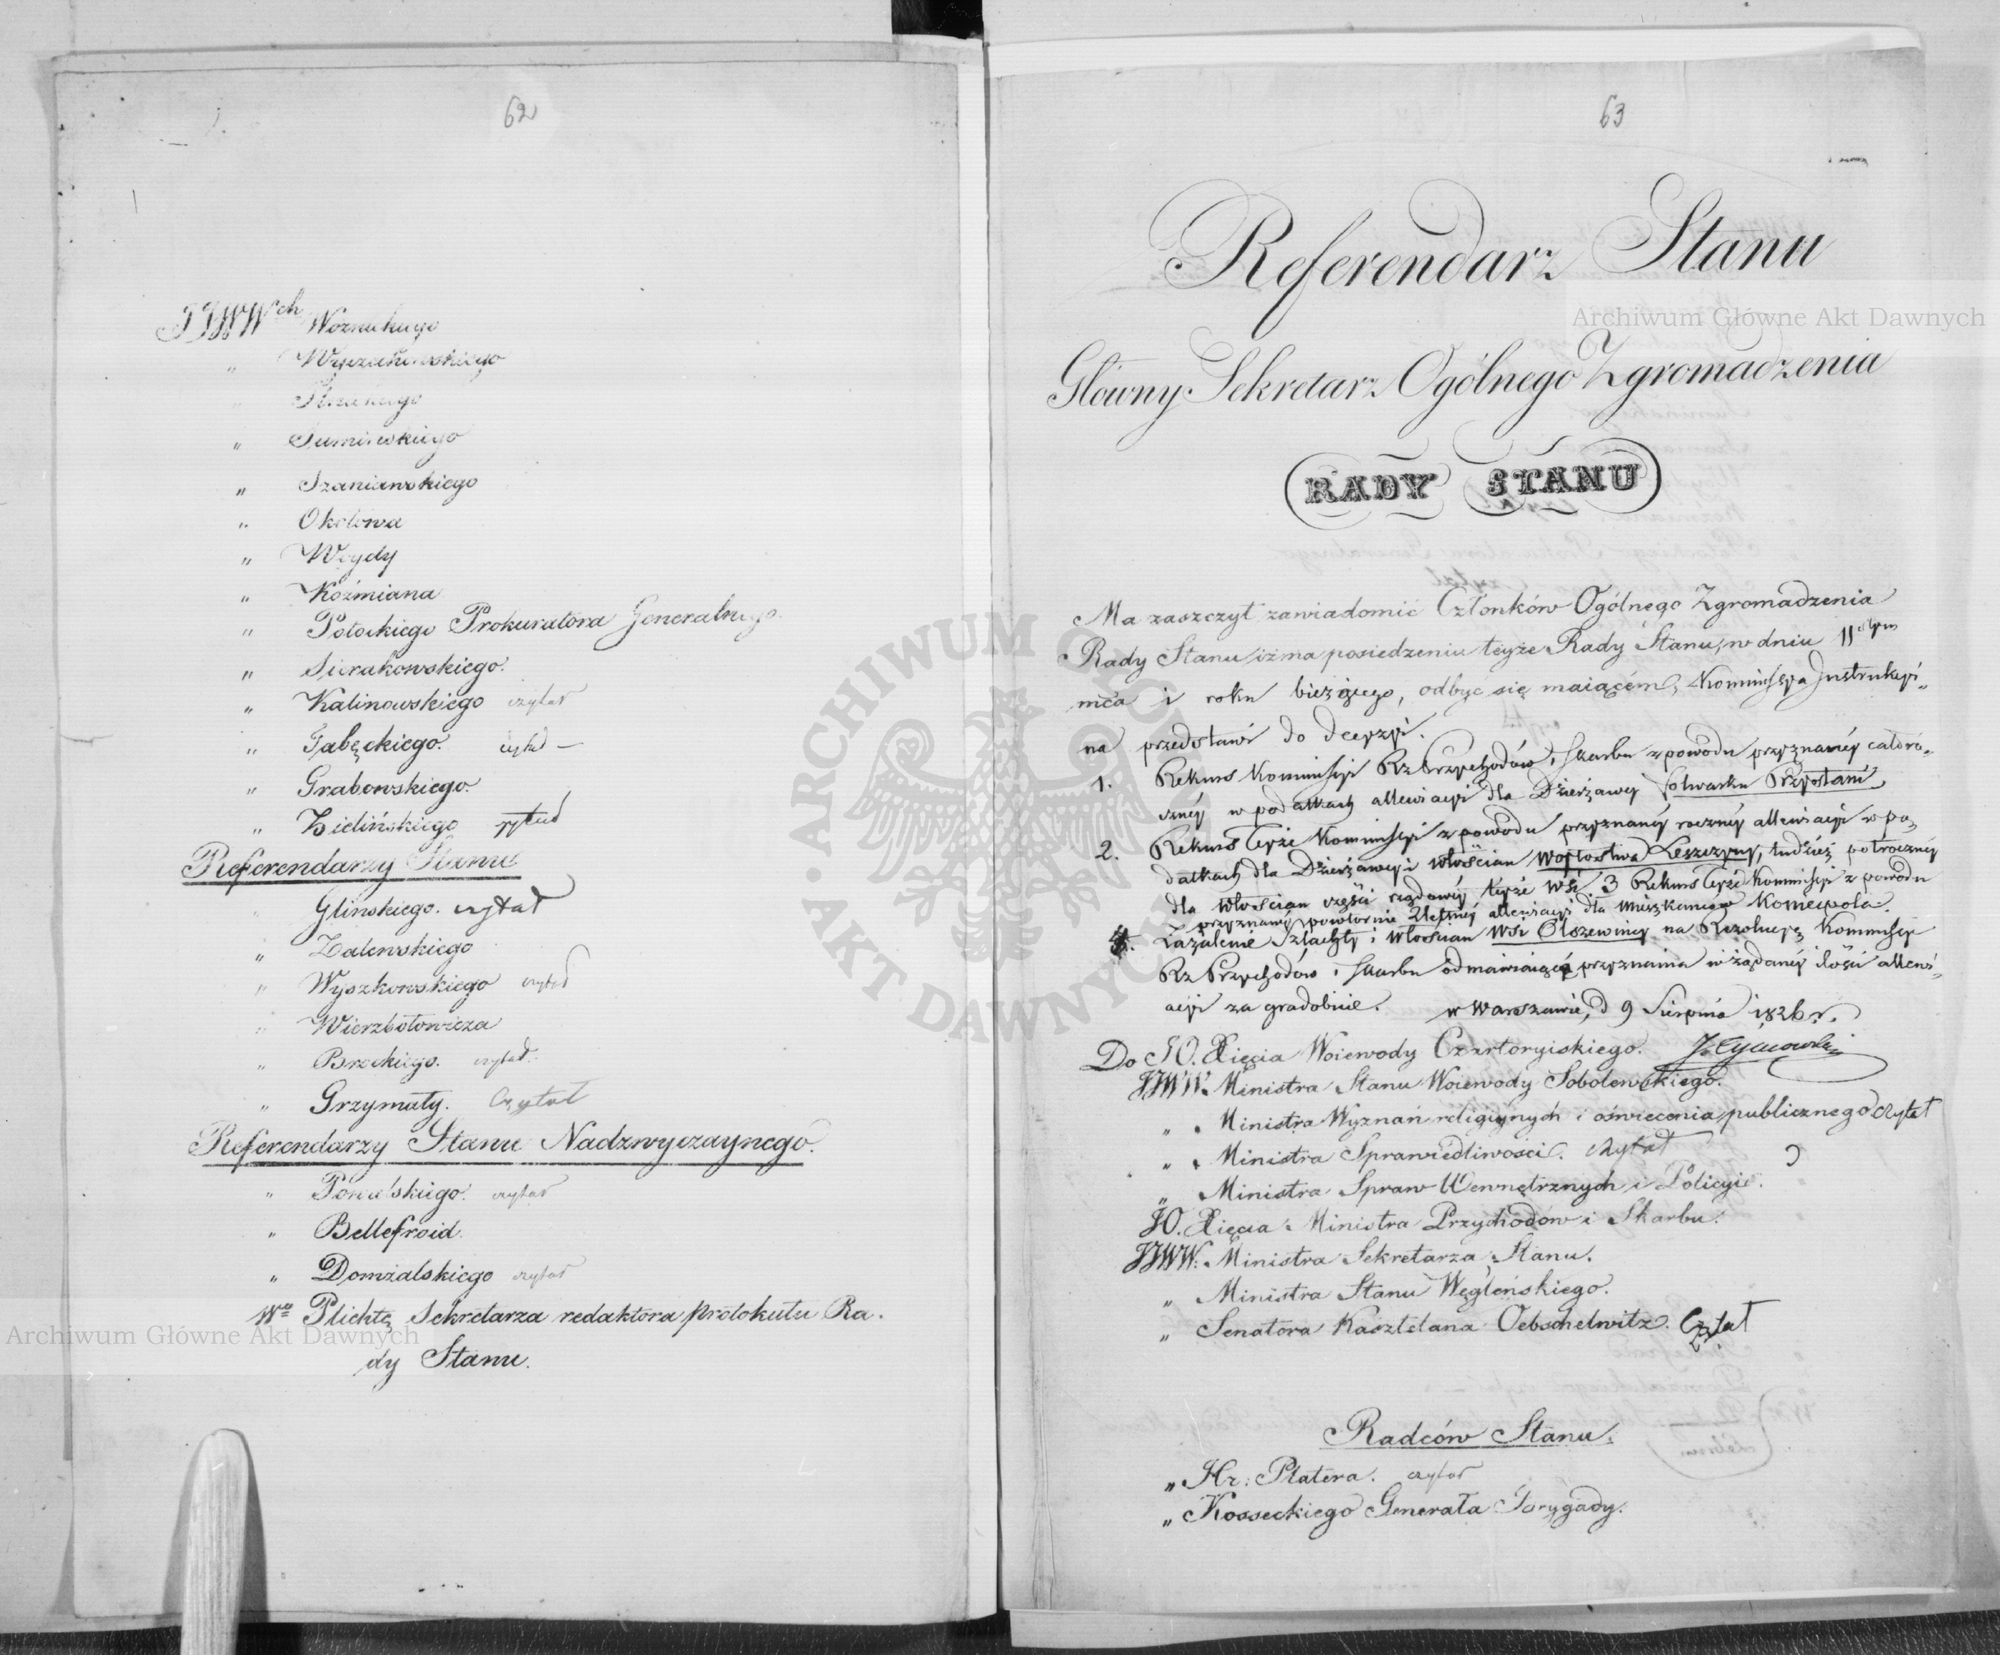 62
JJWWch Woźnickiego
„ Wyczechowskiego
„ Sumińskiego
„ Szaniawskiego
„ Okołowa
„ Woydy
„ Koźmiana
„ Potockiego Prokuratora Generalnego
„ Sierakowskiego.
„ Kalinowskiego czytał
„ Tabęckiego. czytał —
„ Grabowskiego.
„ Zielińskiego czytał
Referendarzy Stanu
Glinskiego. czytał
„ Zalewskiego
„ Wyszkowskiego czytał
„ Wierzbołowicza
„ Brockiego. czytał.
„ Grzymały. Czytał
Referendarzy Stanu Nadzwyczaynego.
„ czytał
„ Bellefroid.
„ Domżalskiego czytał
Wo Plichtę Sekretarza redaktora protokułu Ra.
dy Stanu.
63
Referendarz Stanu
Główny Sekretarz Ogólnego Zgromadzenia
RADY STANU
Ma zaszczyt zawiadomić Członków Ogólnego Zgromadzenia
Rady Stanu iż na posiedzeniu teyże Rady Stanu, w dniu 11stym
mca i roku bieżącego, odbyć się maiącem, Kommissya Instrukcyi„
na przedstawi do decyzyi.
1. Rekurs Kommissyi Rz Przychodów i Skarbu z powodu przyznaney całoro„
czney w podatkach allewiacyi dla Dzierżawcy folwarku Przystani
2. Rekurs teyże Kommissyi z powodu przyznaney roczney allewiacyi w po„
datkach dla Dzierżawcy i włościan Woytostwa Leszczyny, tudzież półroczney
dla włościan części rządowey teyże wsi 3 Rekurs teyże Kommissyi z powodu
przyznaney powtórnie allewiacyi dla mieszkańców Koniecpola.
4. Zażalenie Szlachty i włościan wsi Olszewnicy na Rezolucyę Kommissyi
Rz Przychodów i Skarbu odmawiaiącą przyznania w żądaney ilości allewi„
acyi za gradobicie. w Warszawie, d 9 Sierpnia 1826 r.
Do JO. Xięcia Woiewody Czartoryiskiego. J. Tymowski
JJWW. Ministra Stanu Woiewody Sobolewskiego.
„ Ministra Wyznań religiynych i oświecenia publicznego czytał
„ Ministra Sprawiedliwości. czytał
„ Ministra Spraw Wewnętrznych i Policyi.
JO. Xięcia Ministra Przychodów i Skarbu.
JJWW. Ministra Sekretarza Stanu.
„ Ministra Stanu Węgleńskiego.
„ Senatora Kasztelana Oebschelwitz. Czytał
Radców Stanu.
„ Hr: Platera. czytał
„ Kosseckiego Generała Brygady.
Archiwum Główne Akt Dawnych
Archiwum Główne Akt Dawnych
ARCHIWUM GŁÓWNE AKT DAWNYCH